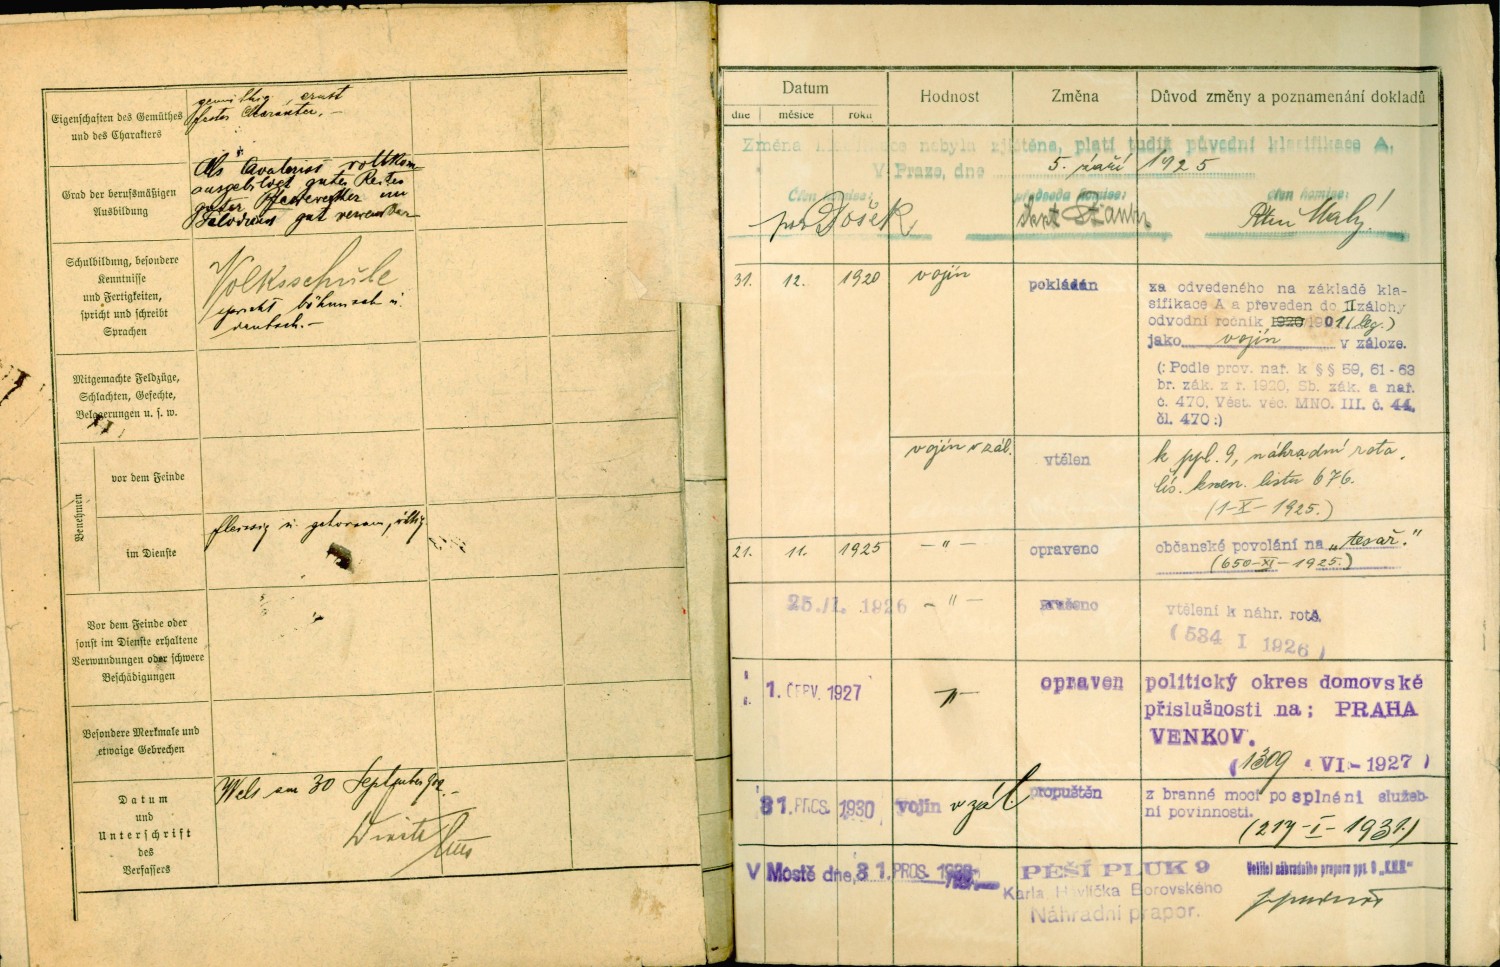 Eigenschaften des Gemüthes
und des Charakters
gemüthig, ernst
fester Charakter. –
Grad der berufsmäßigen
Ausbildung
Als Cavalerist vollkom
ausgebildet guter Reiter
guter Pferdewärter im
Felddienst gut verwendbar
Schulbildung, besondere
Kenntnisse
und Fertigkeiten,
spricht und schreibt
Sprachen
Volksschule
spricht böhmisch u.
deutsch. –
Mitgemachte Feldzüge,
Schlachten, Gefechte,
Belagerungen u. s. w.
Benehmen
vor dem Feinde
im Dienste
fleissig u. gehorsam, willig
Vor dem Feinde oder
sonst im Dienste erhaltene
Verwundungen oder schwere
Beschädigungen
Besondere Merkmale und
etwaige Gebrechen
Datum
und
Unterschrift
des
Verfassers
Wels am 30 September 902. –
Datum
Hodnost
Změna
Důvod změny a poznamenání dokladů
dne
měsíce
roku
Změna klasifikace nebyla zjištěna, platí tudíž původní klasifikace A.
V Praze, dne 5. září 1925
Člen komise:
předseda komise:
člen komise:
Došek
Malý
31. 12. 1920
vojín
pokládán
za odvedeného na základě kla-
sifikace A a převeden do II zálohy
odvodní ročník 1920 1901 (leg.)
jako vojín v záloze.
(: Podle prov. nař. k §§ 59, 61-63
br. zák. z r. 1920, Sb. zák. a nař.
č. 470, Věst. věc. MNO. III. č. 44,
čl. 470 :)
vojín v zál.
vtělen
k ppl. 9, náhradní rota,
čís. kmen. listu 676.
(1-X-1925.)
21. 11. 1925
– " –
opraveno
občanské povolání na „tesař."
(650-XI-1925.)
25. II. 1926
– " –
zrušeno
vtělení k náhr. rotě.
(534 I 1926)
1. ČERV. 1927
–"–
opraven
politický okres domovské
příslušnosti na; PRAHA
VENKOV.
(1309 VI - 1927)
31. PROS. 1930
vojín v zál.
propuštěn
z branné moci po splnění služeb-
ní povinnosti.
(217-I-1931.)
V Mostě dne, 31. PROS. 1930
PĚŠÍ PLUK 9
Karla Havlíčka Borovského
Náhradní prapor.
Velitel náhradního praporu ppl. 9 „KHB"